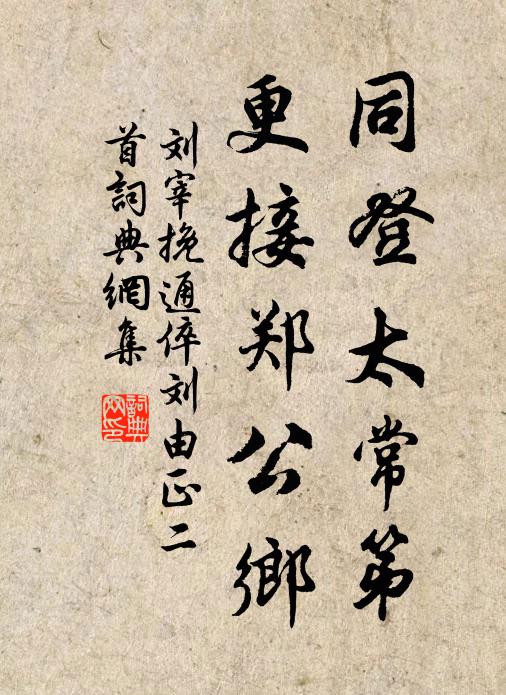 同登太常第
更接郑公鄉
刘宰挽通倅刘由正二
首詞典網集
詞典網印